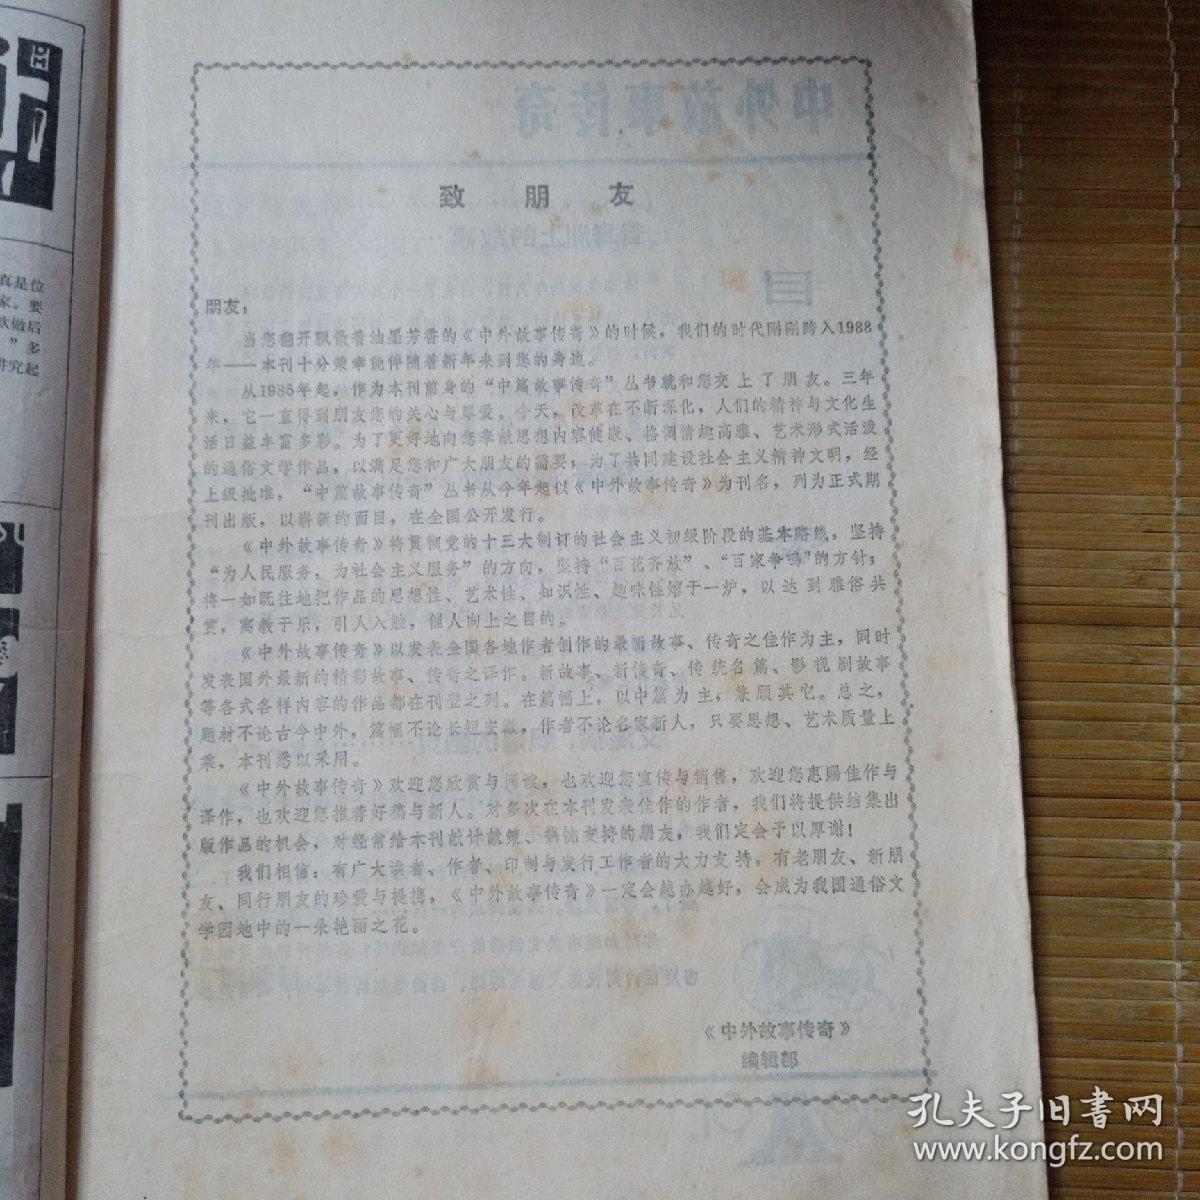 真是位
家。要
欢做后
”多
讲究起
致 朋 友
朋友：
当您翻开飘散着油墨芳香的《中外故事传奇》的时候，我们的时代刚刚跨入1988
年——本刊十分荣幸能伴随着新年来到您的身边。
从1985年起，作为本刊前身的“中篇故事传奇”丛书就和您交上了朋友。三年
来，它一直得到朋友您的关心与厚爱。今天，改革在不断深化，人们的精神与文化生
活日益丰富多彩。为了更好地向您奉献思想内容健康、格调情趣高雅、艺术形式活泼
的通俗文学作品，以满足您和广大朋友的需要；为了共同建设社会主义精神文明，经
上级批准，“中篇故事传奇”丛书从今年起以《中外故事传奇》为刊名，列为正式期
刊出版，以崭新的面目，在全国公开发行。
《中外故事传奇》将贯彻党的十三大制订的社会主义初级阶段的基本路线，坚持
“为人民服务，为社会主义服务”的方向，坚持“百花齐放”、“百家争鸣”的方针；
将一如既往地把作品的思想性、艺术性、知识性、趣味性熔于一炉，以达到雅俗共
赏，寓教于乐，引人入胜，催人向上之目的。
《中外故事传奇》以发表全国各地作者创作的最新故事、传奇之佳作为主，同时
发表国外最新的精彩故事、传奇之译作。新故事、新传奇、传统名篇、影视剧故事
等各式各样内容的作品都在刊登之列。在篇幅上，以中篇为主，兼顾其它。总之，
题材不论古今中外，篇幅不论长短宏微，作者不论名家新人，只要思想、艺术质量上
乘，本刊悉以采用。
《中外故事传奇》欢迎您欣赏与阅读，也欢迎您宣传与销售，欢迎您惠赐佳作与
译作，也欢迎您推荐好稿与新人。对多次在本刊发表佳作的作者，我们将提供结集出
版作品的机会，对经常给本刊献计献策、热忱支持的朋友，我们定会予以厚谢！
我们相信：有广大读者、作者、印制与发行工作者的大力支持，有老朋友、新朋
友、同行朋友的珍爱与提携，《中外故事传奇》一定会越办越好，会成为我国通俗文
学园地中的一朵艳丽之花。
《中外故事传奇》
编辑部
孔夫子旧书网
www.kongfz.com